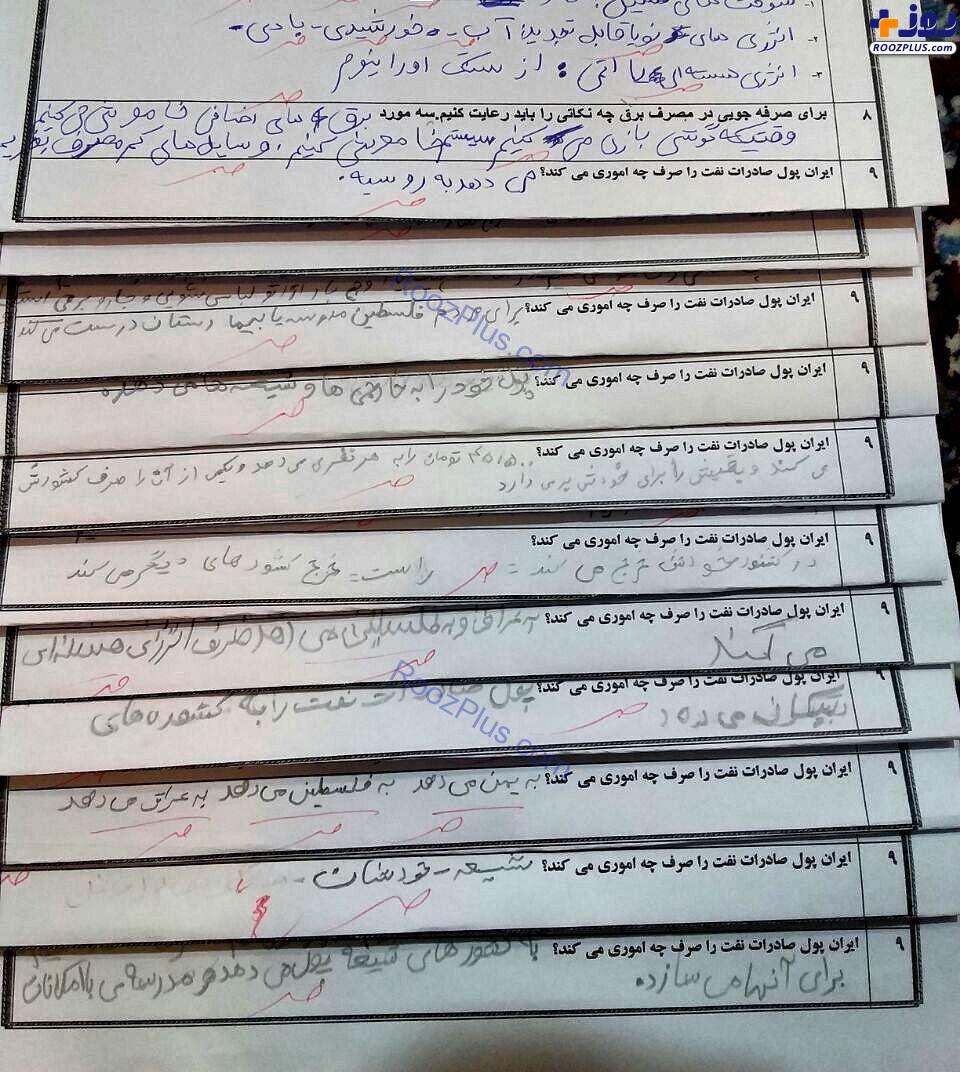 روز
ROOZPLUS.com
۲- انرژی های نو یا قابل تجدید: آب - خورشیدی - بادی -
۳- انرژی هسته ای یا اتمی: از سنگ اورانیوم
۸ برای صرفه جویی در مصرف برق چه نکاتی را باید رعایت کنیم.سه مورد برق های اضافی خاموش می کنیم
وقتیکه گوشی بازی می کنیم سیستم خاموش کنیم، وسایل های کم مصرف
۹ ایران پول صادرات نفت را صرف چه اموری می کند؟ می دهد به روسیه.
RoozPlus.com
۹ ایران پول صادرات نفت را صرف چه اموری می کند؟ برای مردم فلسطین مدرسه یا بیمارستان درست می کند
۹ ایران پول صادرات نفت را صرف چه اموری می کند؟ پول خود را به خارجی ها و شیعه ها می دهد
۹ ایران پول صادرات نفت را صرف چه اموری می کند؟ تومان را به هر نفری می دهد و یکمی از آن را صرف کشورش
می کند و بقیش را برای خودش بر می دارد
۹ ایران پول صادرات نفت را صرف چه اموری می کند؟
در کشور خودش خرج می کند = راست = خرج کشورهای دیگر می کند
۹ ایران پول صادرات نفت را صرف چه اموری می کند؟ به عراق و به فلسطین می صرف انرژی هسته ای
می کند
۹ ایران پول صادرات نفت را صرف چه اموری می کند؟ پول صادرات نفت را به کشورهای
می دهد
RoozPlus.com
۹ ایران پول صادرات نفت را صرف چه اموری می کند؟ به یمن می دهد به فلسطین می دهد به عراق می دهد
۹ ایران پول صادرات نفت را صرف چه اموری می کند؟ شیعه - خودشان -
۹ ایران پول صادرات نفت را صرف چه اموری می کند؟ به کشورهای شیعه پول می دهد و مدرسه ی با امکانات
برای آنها می سازد.